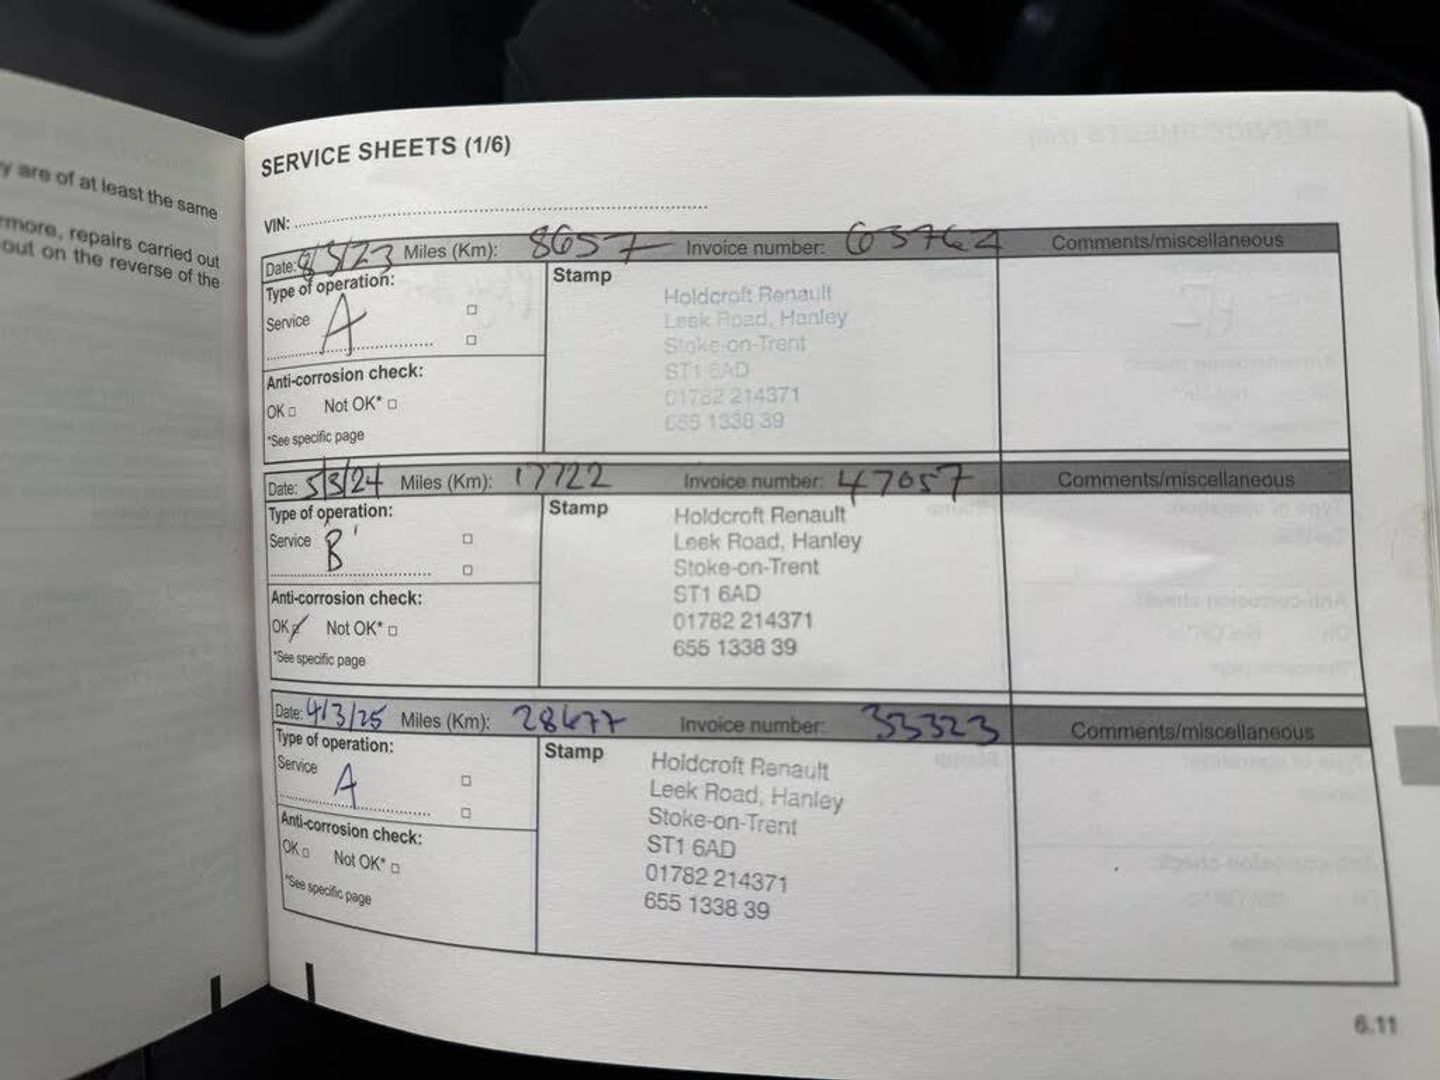 y are of at least the same
rmore, repairs carried out
out on the reverse of the
SERVICE SHEETS (1/6)
VIN:
Date: 8/3/23 Miles (Km): 8657 Invoice number: 63762 Comments/miscellaneous
Type of operation:
Service A
Stamp
Holdcroft Renault
Leek Road, Hanley
Stoke-on-Trent
ST1 6AD
01782 214371
655 1338 39
Anti-corrosion check:
OK □ Not OK* □
*See specific page
Date: 5/3/24 Miles (Km): 17722 Invoice number: 47057 Comments/miscellaneous
Type of operation:
Service 'B'
Stamp
Holdcroft Renault
Leek Road, Hanley
Stoke-on-Trent
ST1 6AD
01782 214371
655 1338 39
Anti-corrosion check:
OK Not OK* □
*See specific page
Date: 4/3/25 Miles (Km): 28477 Invoice number: 33323 Comments/miscellaneous
Type of operation:
Service A
Stamp
Holdcroft Renault
Leek Road, Hanley
Stoke-on-Trent
ST1 6AD
01782 214371
655 1338 39
Anti-corrosion check:
OK □ Not OK* □
*See specific page
6.11